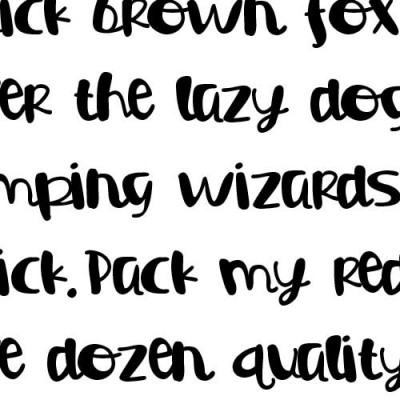 ick brown fox
er the lazy dog
mping wizards
ick. Pack my red
e dozen quality